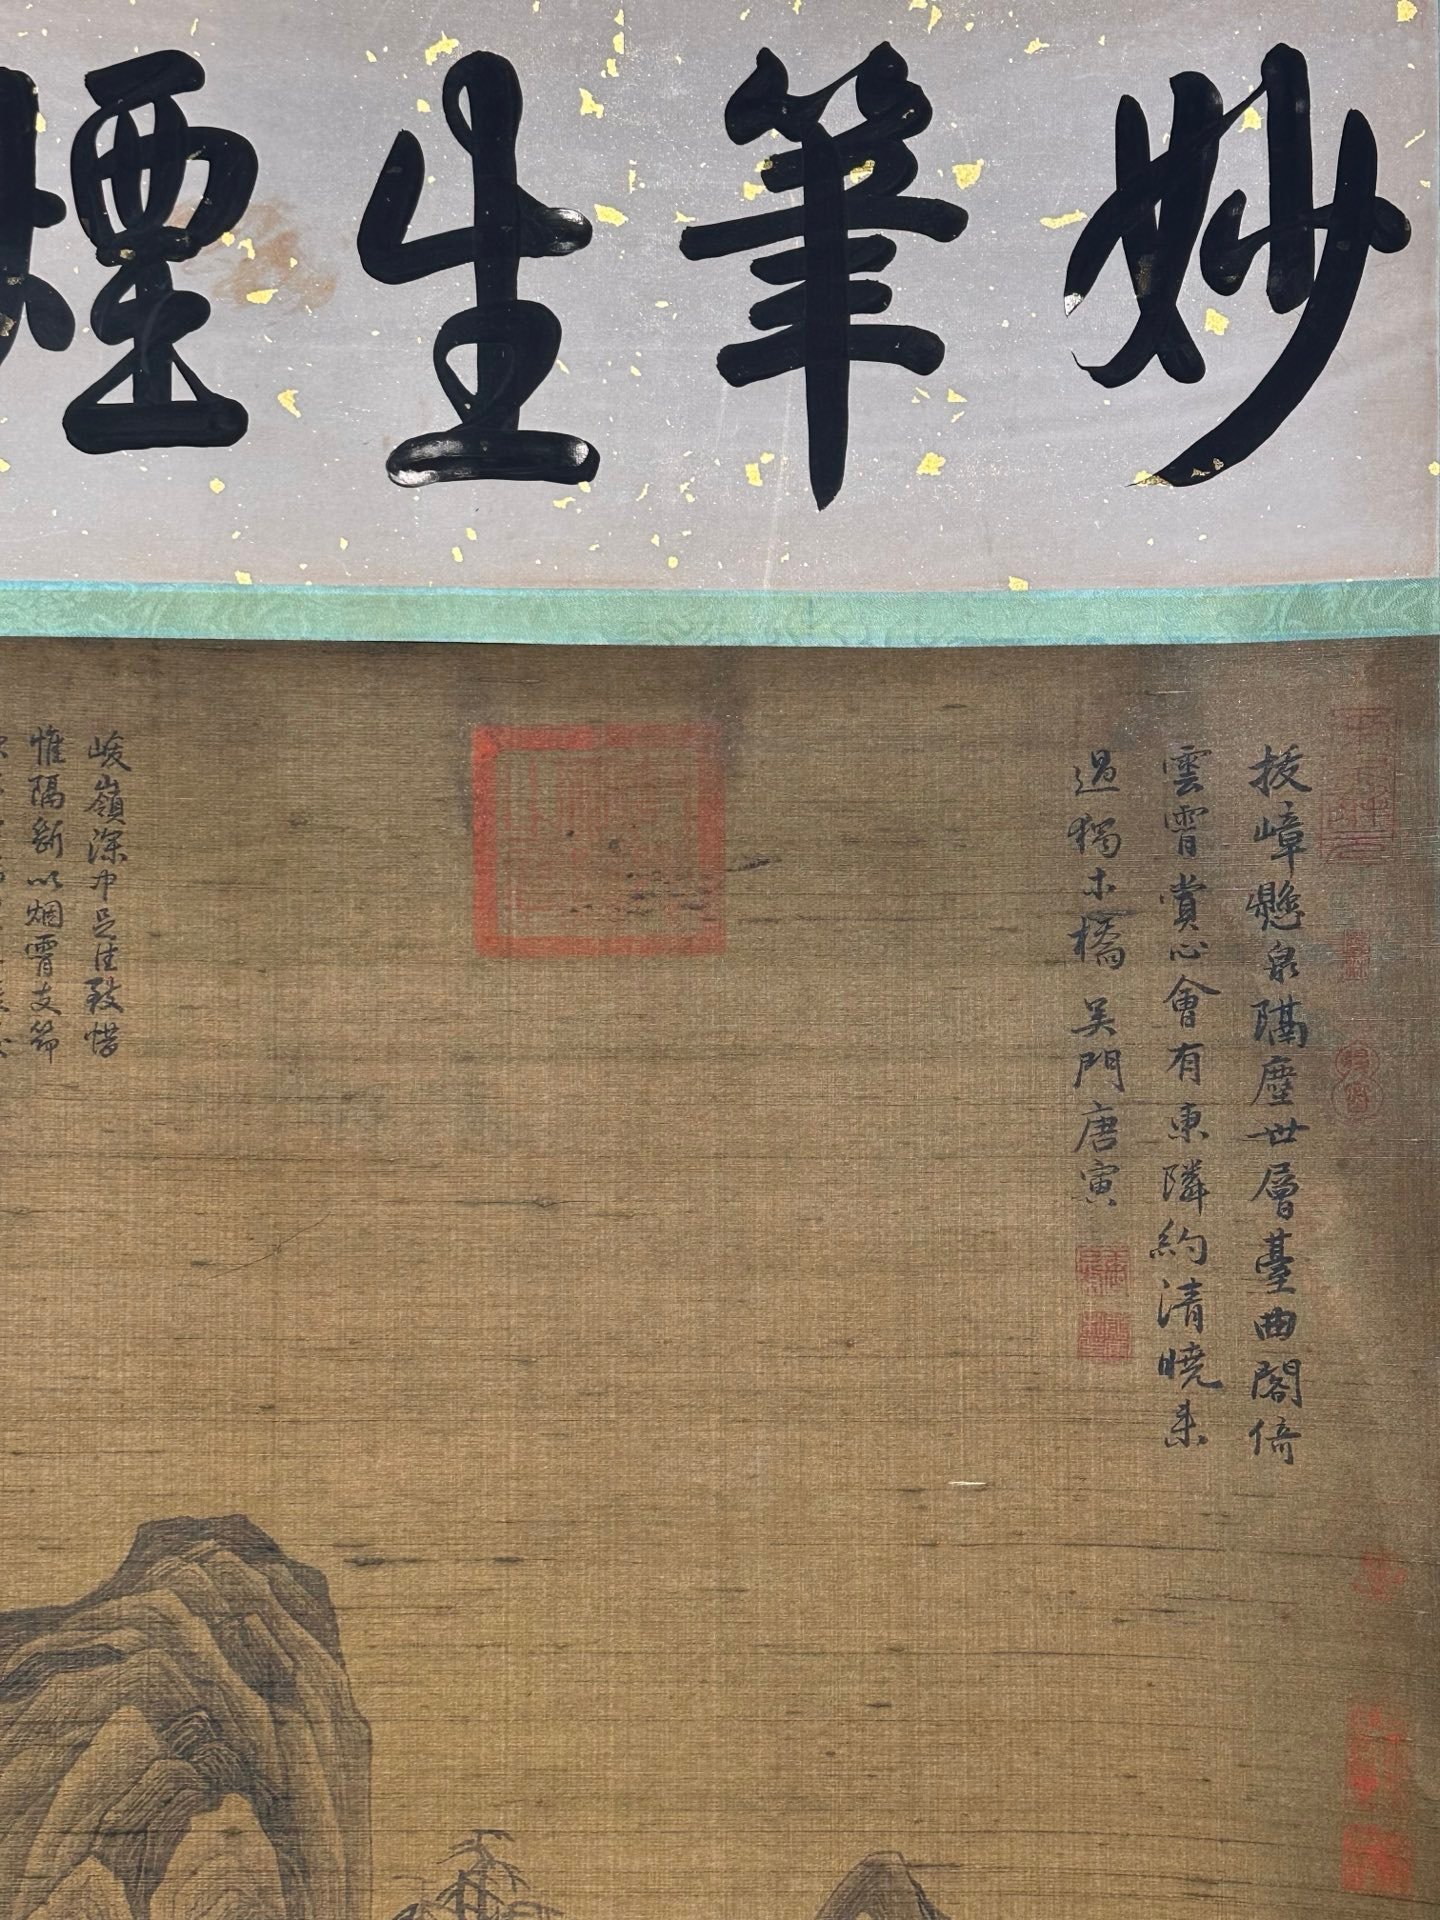 妙筆生煙
拔嶂懸泉隔塵世層臺曲閣倚
雲霄賞心會有東隣約清曉未
過獨木橋 吴門唐寅
峻嶺深中足佳致惜
惟隔斷以烟霄支笻